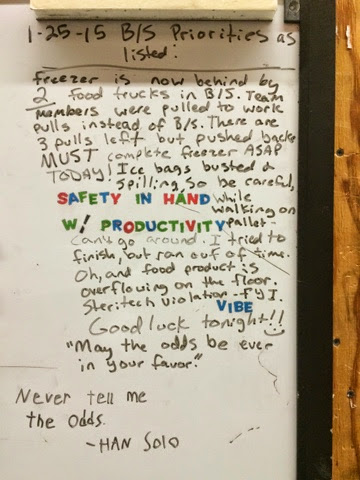 1-25-15 B/S Priorities as
listed:
freezer is now behind by
2 food trucks in B/S. Team
members were pulled to work
pulls instead of B/S. There are
3 pulls left but pushed back.
MUST complete freezer ASAP
TODAY! Ice bags busted &
spilling, so be careful,
SAFETY IN HAND while
walking on
W/ PRODUCTIVITY pallet-
can't go around. I tried to
finish, but ran out of time.
Oh, and food product is
overflowing on the floor.
Steritech violation - FYI.
VIBE
Good luck tonight!!
"May the odds be ever
in your favor."
Never tell me
the Odds.
-HAN SOLO